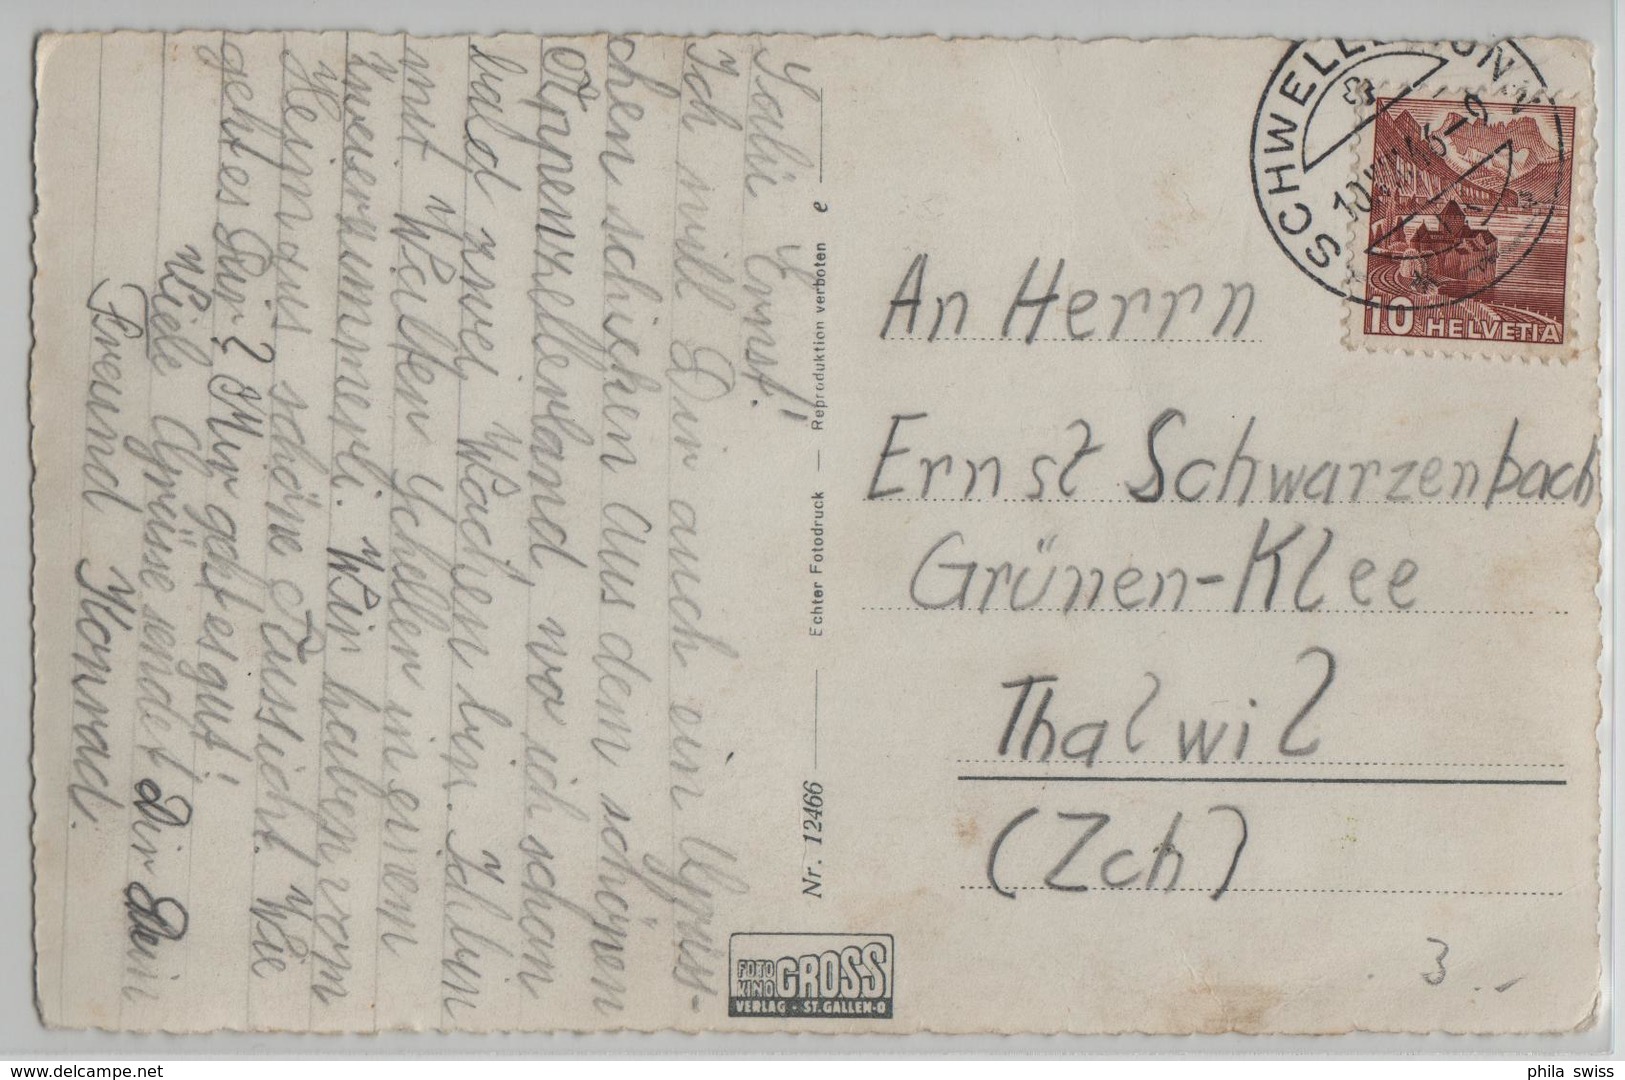 Salü Ernst!
Ich will Dir auch ein Grüss-
chen schicken aus dem schönen
Appenzellerland, wo ich schon
bald zwei Wochen bin. Ich bin
mit Walter Scheller in einem
Zweierzimmerli. Wir haben vom
Heim aus schöne Aussicht. Wie
geht es Dir? Mir geht es gut!
Viele Grüsse sendet Dir Dein
Freund Konrad.
Nr. 12466 — Echter Fotodruck — Reproduktion verboten e
FOTO KINO GROSS
VERLAG - ST. GALLEN-O
SCHWELLBRUNN
10 HELVETIA
An Herrn
Ernst Schwarzenbach
Grünen-Klee
Thalwil
(Zch)
3.-
phila swiss
delcampe.net